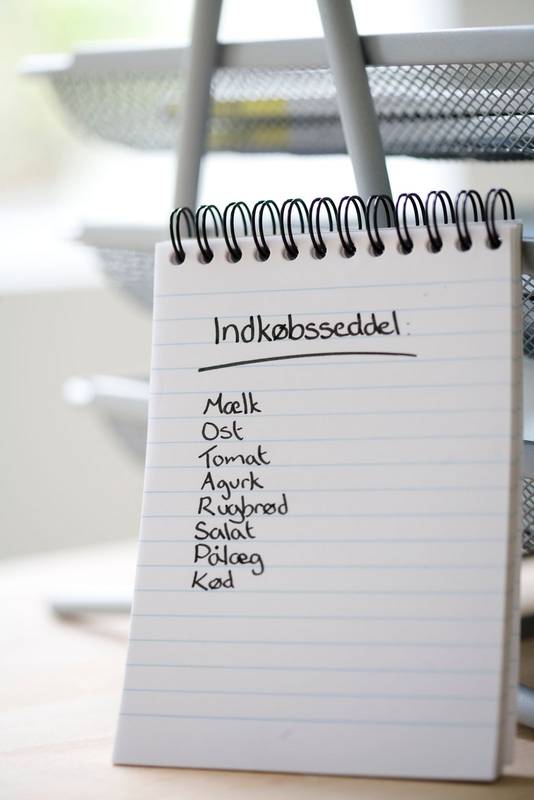 Indkøbsseddel:
Mælk
Ost
Tomat
Agurk
Rugbrød
Salat
Pålæg
Kød